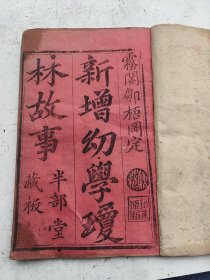 霧閣鄒梧岡定
新增幼學瓊
林故事
半部堂
藏板